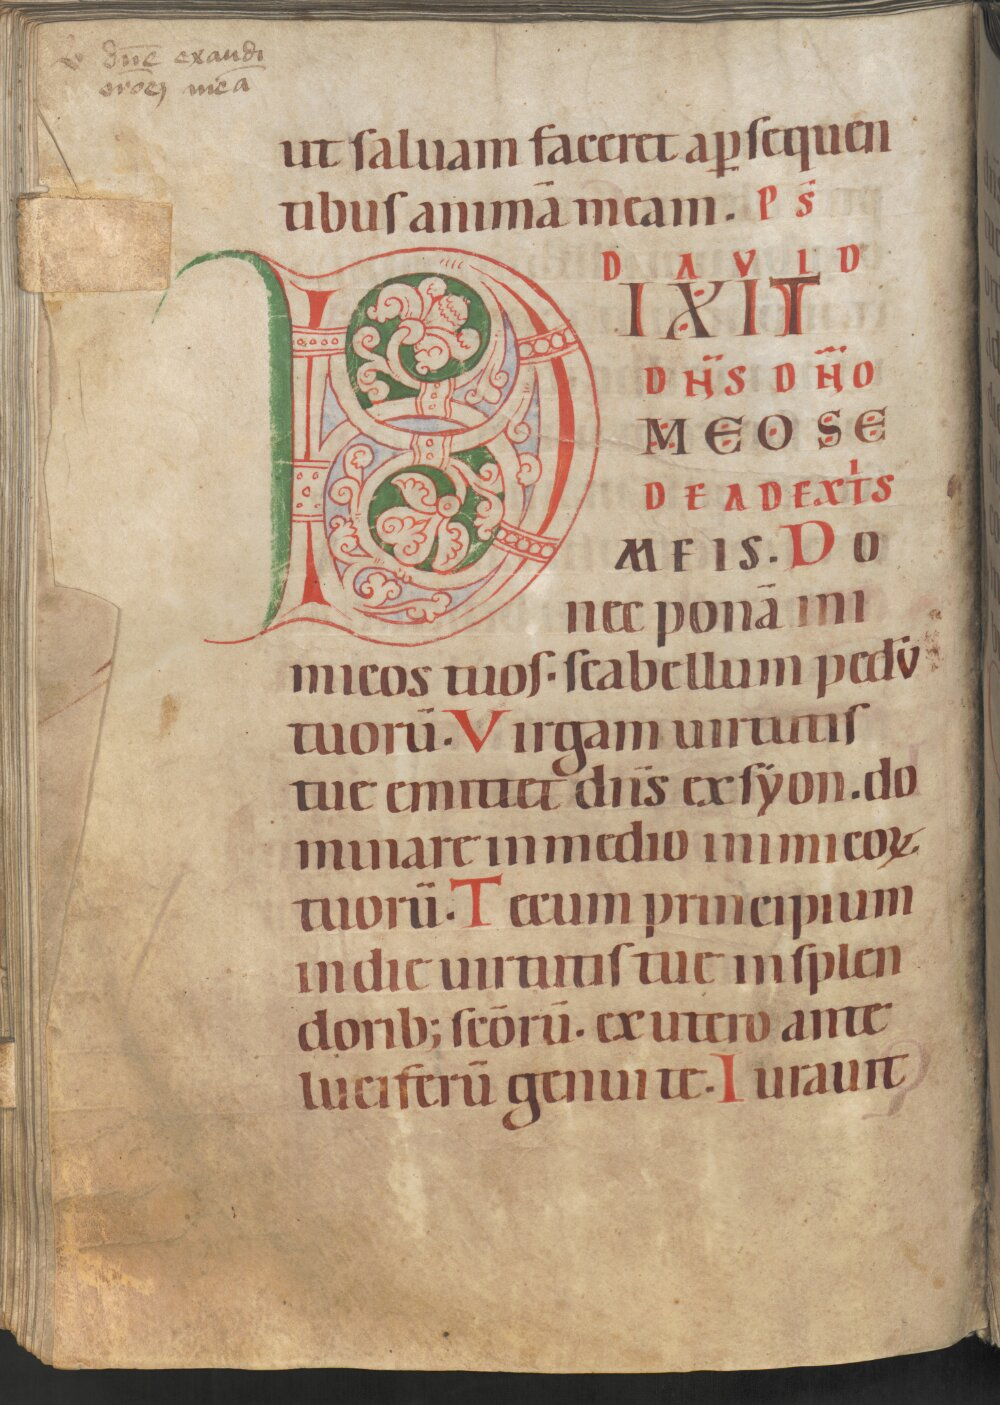 V dn̄e exaudi
orōeȝ meā
ut saluam faceret a ꝑsequen
tibus animā meam. PS̄
DAVID
DIXIT
DN̄S DN̄O
MEO SE
DE A DEXTˡS
MEIS. DO
nec ponā ini
micos tuos· scabellum pedū
tuorū. Virgam uirtutis
tue emittet dn̄s ex sẏon. do
minare in medio inimicoꝝ
tuorū. Tecum principium
in die uirtutis tue in splen
dorib; scōrū. ex utero ante
luciferū genui te. Iurauit